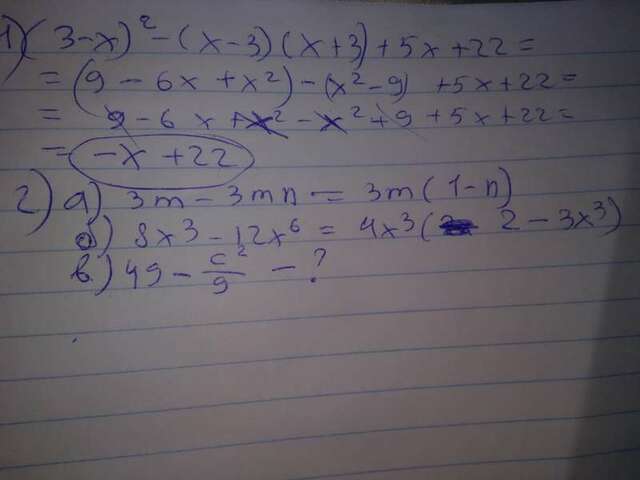 1) (3-x)² - (x-3)(x+3) + 5x + 22 =
= (9 - 6x + x²) - (x² - 9) + 5x + 22 =
= 9 - 6x + x² - x² + 9 + 5x + 22 =
= -x + 22
2) а) 3m - 3mn = 3m(1-n)
б) 8x³ - 12x⁶ = 4x³(2 - 3x³)
в) 49 - c²/9 - ?